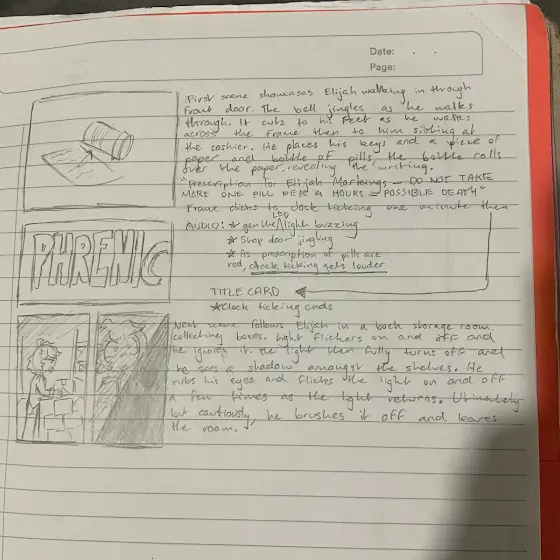 Date: . .
Page:
First scene showcases Elijah walking in through
front door. The bell jingles as he walks
through. It cuts to his feet as he walks
across the frame then to him sitting at
the cashier. He places his keys and a piece of
paper and bottle of pills, the bottle rolls
over the paper, revealing the writing.
"Prescription for Elijah Markings – DO NOT TAKE
MORE ONE PILL PER 4 HOURS = POSSIBLE DEATH"
Frame clicks to clock ticking one minute then
LED
AUDIO: ★ gentle / light buzzing
★ Shop door jingling
★ As prescription of pills are
red, clock ticking gets louder
PHRENIC
TITLE CARD
★ Clock ticking ends
Next scene follows Elijah in a back storage room
collecting boxes. Light flickers on and off and
he ignores it. The light then fully turns off and
he sees a shadow amongst the shelves. He
rubs his eyes and flicks the light on and off
a few times as the light returns. Ultimately
but cautiously, he brushes it off and leaves
the room.